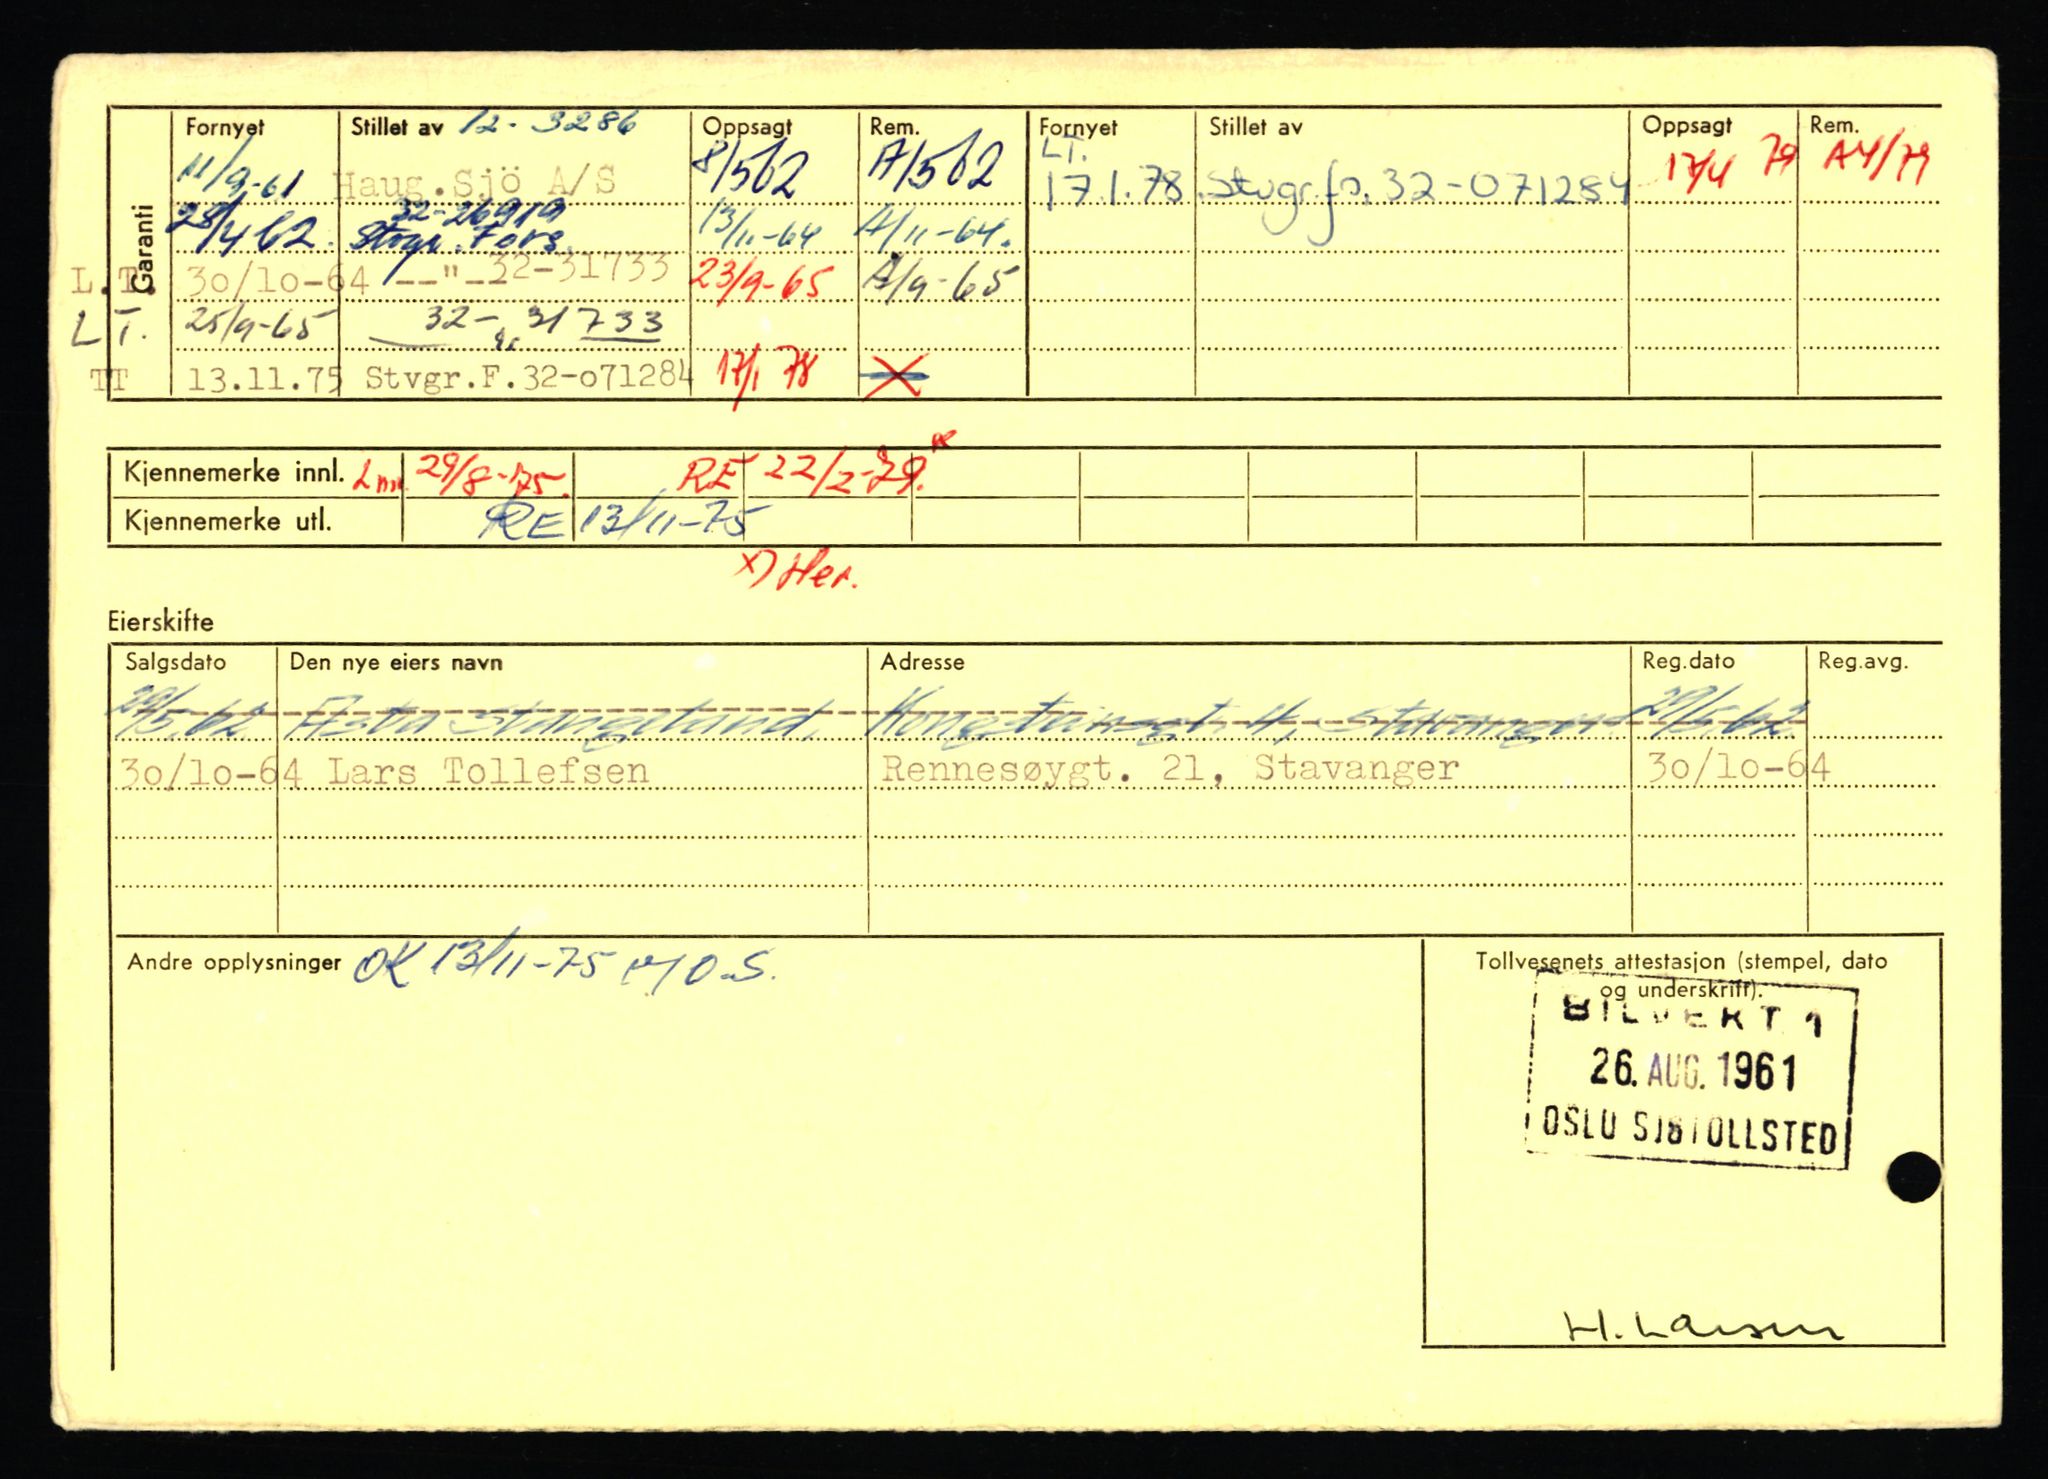 Garanti
Fornyet Stillet av 12-3286 Oppsagt Rem. Fornyet Stillet av Oppsagt Rem.
11/9-61 Haug.Sjö A/S 8/5 62 A/5 62 LT. 17.1.78. Stvgr.fo. 32-071284 17/4 79 A4/79
28/4 62. 32-26919 Stvgr. Fors. 13/11-64 A/11-64.
L.T. 30/10-64 --"-- 32-31733 23/9-65 A/9-65
L.T. 25/9-65 32-31733
TT 13.11.75 Stvgr.F.32-071284 17/1 78
Kjennemerke innl. 29/8-75. RE 22/2-79. x
Kjennemerke utl. RE 13/11-75
x) Her.
Eierskifte
Salgsdato Den nye eiers navn Adresse Reg.dato Reg.avg.
29/5.62 Asta Stangeland. Kongsteinsgt. 4, Stavanger. 29/5.62.
30/10-64 Lars Tollefsen Rennesøygt. 21, Stavanger 30/10-64
Andre opplysninger OK 13/11-75 O.S.
Tollvesenets attestasjon (stempel, dato
og underskrift).
BILVERT 1
26. AUG. 1961
OSLO SJØTOLLSTED
H. Larsen